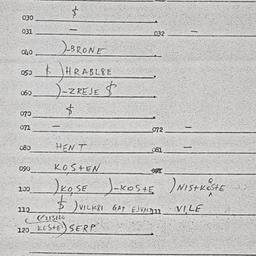 030 $
031 — 032 —
040 )-BRONE
050 )HRABLJE
060 )-ZREJE $
070 $
071 — 072 —
080 HENT 081 —
090 KOSTEN
100 )KOSE )-KOSTE )NISTKOSTE
110 $ )VILKBI GAP VILE
120 KOSTE) SERP